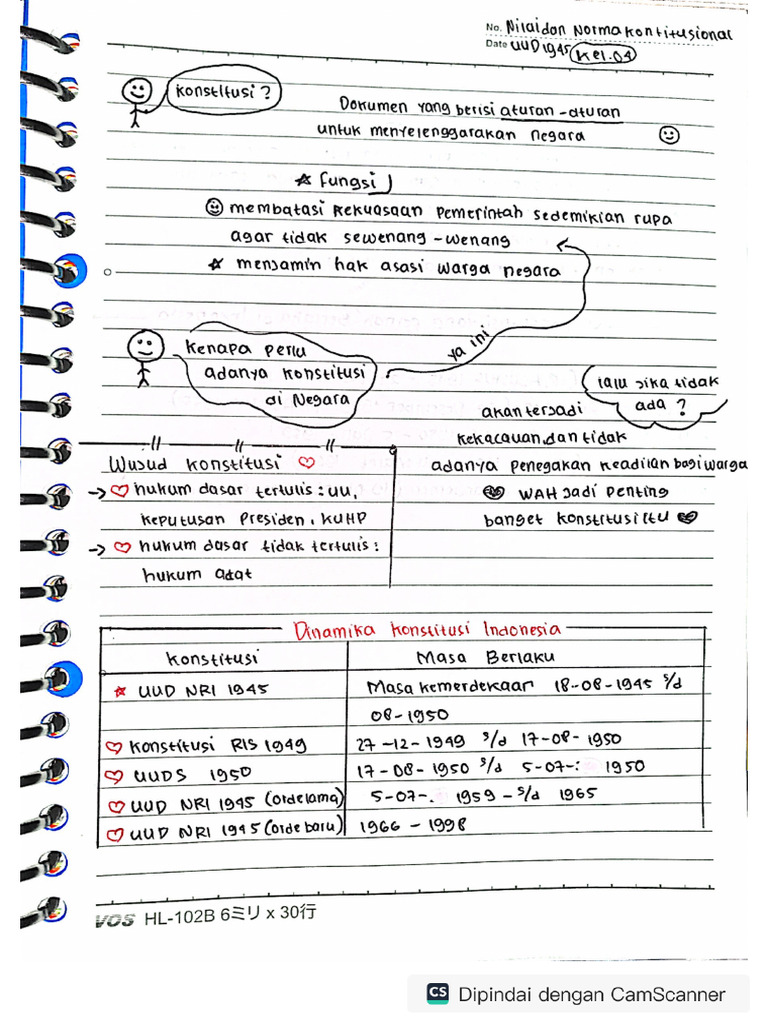 No. Nilai dan Norma Kontitusional
Date UUD 1945 Kel.04
Konstitusi?
Dokumen yang berisi aturan-aturan
untuk menyelenggarakan negara
Fungsi
membatasi kekuasaan pemerintah sedemikian rupa
agar tidak sewenang-wenang
menjamin hak asasi warga negara
ya ini
Kenapa perlu
adanya konstitusi
di Negara
lalu jika tidak
ada?
akan terjadi
kekacauan, dan tidak
adanya penegakan keadilan bagi warga
WAH Jadi penting
banget konstitusi itu
Wujud konstitusi
→ hukum dasar tertulis: UU,
keputusan Presiden, KUHP
→ hukum dasar tidak tertulis:
hukum adat
Dinamika Konstitusi Indonesia
Konstitusi Masa Berlaku
UUD NRI 1945 Masa kemerdekaan 18-08-1945 s/d
08-1950
Konstitusi RIS 1949 27-12-1949 s/d 17-08-1950
UUDS 1950 17-08-1950 s/d 5-07-: 1950
UUD NRI 1945 (orde lama) 5-07-. 1959 - s/d 1965
UUD NRI 1945 (orde baru) 1966 - 1998
VOS HL-102B 6ミリ x 30行
CS Dipindai dengan CamScanner